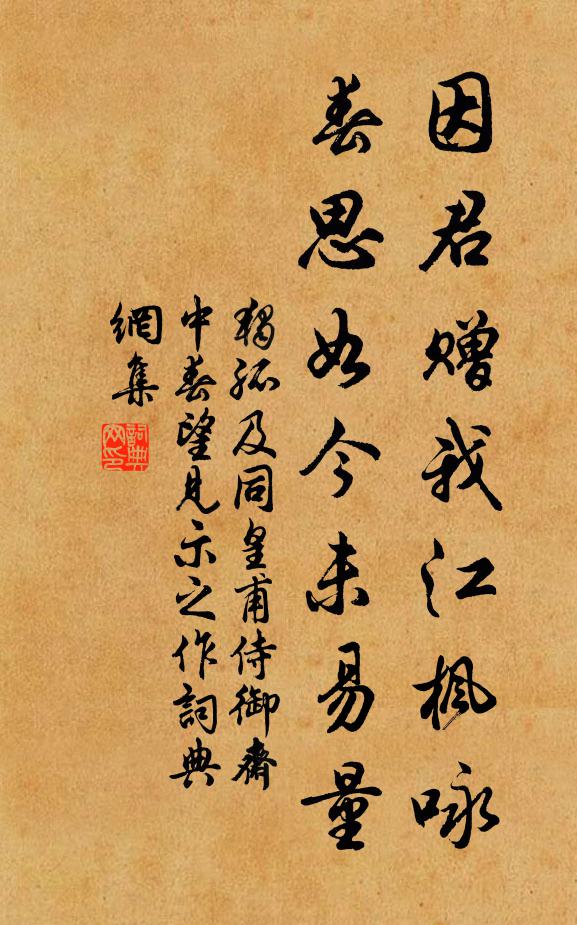 因君赠我江枫咏
春思如今未易量
獨孤及同皇甫侍御齋
中春望見示之作詞典
網集
詞典
网印